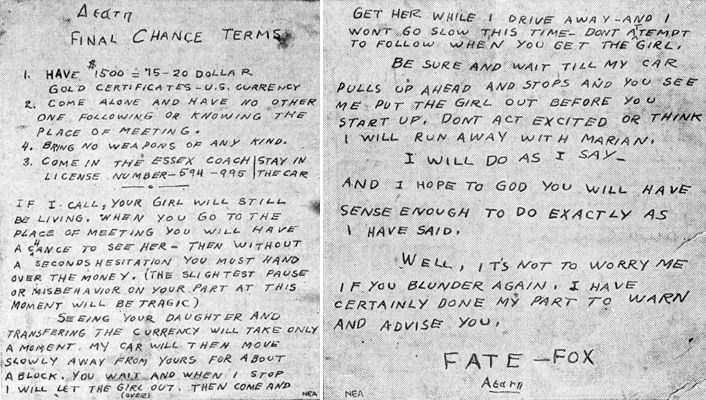 Δεατη
FINAL CHANCE TERMS
1. HAVE $1500 = 75-20 DOLLAR
GOLD CERTIFICATES - U.S. CURRENCY
2. COME ALONE AND HAVE NO OTHER
ONE FOLLOWING OR KNOWING THE
PLACE OF MEETING.
4. BRING NO WEAPONS OF ANY KIND.
3. COME IN THE ESSEX COACH | STAY IN
LICENSE NUMBER - 594-995 | THE CAR
IF I CALL, YOUR GIRL WILL STILL
BE LIVING. WHEN YOU GO TO THE
PLACE OF MEETING YOU WILL HAVE
A CHANCE TO SEE HER - THEN WITHOUT
A SECONDS HESITATION YOU MUST HAND
OVER THE MONEY. (THE SLIGHTEST PAUSE
OR MISBEHAVIOR ON YOUR PART AT THIS
MOMENT WILL BE TRAGIC)
SEEING YOUR DAUGHTER AND
TRANSFERING THE CURRENCY WILL TAKE ONLY
A MOMENT. MY CAR WILL THEN MOVE
SLOWLY AWAY FROM YOURS FOR ABOUT
A BLOCK. YOU WAIT AND WHEN I STOP
I WILL LET THE GIRL OUT. THEN COME AND
(OVER)
NEA
GET HER WHILE I DRIVE AWAY - AND I
WONT GO SLOW THIS TIME - DONT ATTEMPT
TO FOLLOW WHEN YOU GET THE GIRL.
BE SURE AND WAIT TILL MY CAR
PULLS UP AHEAD AND STOPS AND YOU SEE
ME PUT THE GIRL OUT BEFORE YOU
START UP. DONT ACT EXCITED OR THINK
I WILL RUN AWAY WITH MARIAN.
I WILL DO AS I SAY -
AND I HOPE TO GOD YOU WILL HAVE
SENSE ENOUGH TO DO EXACTLY AS
I HAVE SAID.
WELL, IT'S NOT TO WORRY ME
IF YOU BLUNDER AGAIN. I HAVE
CERTAINLY DONE MY PART TO WARN
AND ADVISE YOU.
FATE - FOX
Δεατη
NEA